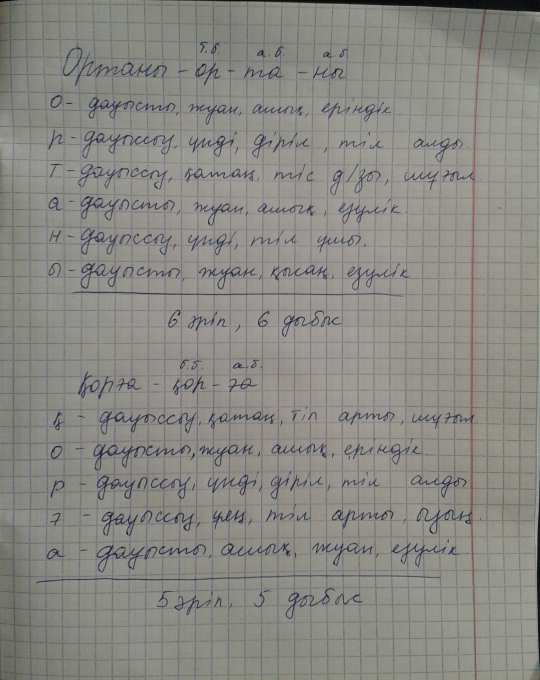 т.б. а.б а б
Ортаны – ор – та – ны
О – дауысты, жуан, ашық, еріндік
р – дауыссыз, үнді, діріл, тіл алды
Т – дауыссыз, қатаң, тіс д/зы, шұғыл
а – дауысты, жуан, ашық, езулік.
н – дауыссыз, үнді, тіл ұшы.
ы – дауысты, жуан, қысаң, езулік
6 әріп, 6 дыбыс
б.б. а.б.
Қорға – қор – ға
қ – дауыссыз, қатаң, тіл арты, шұғыл
о – дауысты, жуан, ашық, еріндік
р – дауыссыз, үнді, діріл, тіл алды
ғ – дауыссыз, ұяң, тіл арты, ызың.
а – дауысты, ашық, жуан, езулік
5 әріп, 5 дыбыс